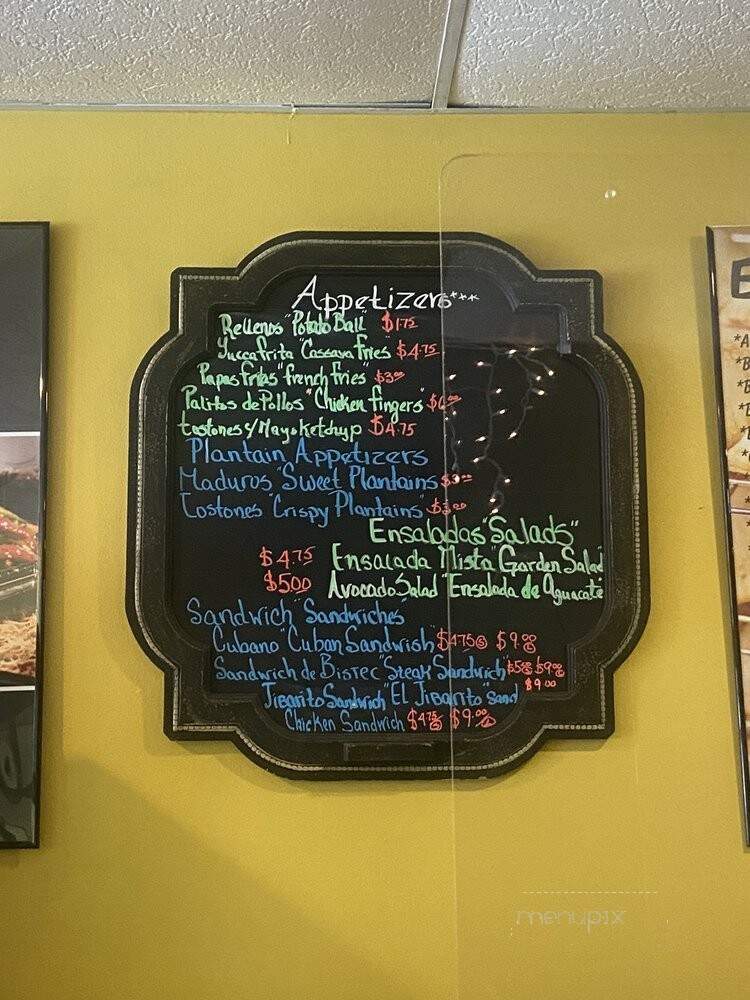 Appetizers***
Rellenos "Potato Ball" $1.75
Yucca frita "Cassava fries" $4.75
Papas fritas "french fries" $3.00
Palitos de Pollos "Chicken fingers"
tostones y/Mayoketchup $4.75
Plantain Appetizers
Maduros "Sweet Plantains" $3.00
Tostones "Crispy Plantains" $3.00
Ensaladas "Salads"
$4.75 Ensalada Mista "Garden Salad
$5.00 Avocado Salad "Ensalada de aguacate
Sandwich "Sandwiches"
Cubano "Cuban Sandwish" $4.75 $9.00
Sandwich de Bistec "Steak Sandwich" $9.00
$9.00
Jibarito Sandwich "EL Jibarito" Sand
Chicken Sandwich $4.75 $9.00
E
menupix